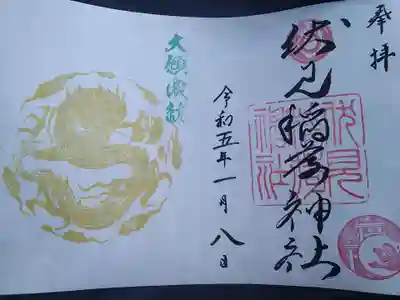 奉拝
伏見稲荷神社
伏見
稲荷
神社
令和五年一月八日
大願成就